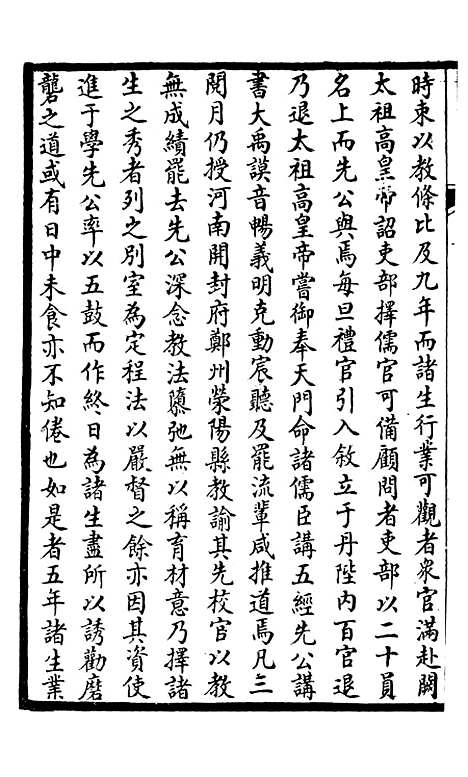 時束以教條比及九年而諸生行業可觀者衆官滿赴闕
太祖高皇帝詔吏部擇儒官可備顧問者吏部以二十員
名上而先公與焉每旦禮官引入敘立于丹陛内百官退
乃退太祖高皇帝嘗御奉天門命諸儒臣講五經先公講
書大禹謨音暢義明克動宸聽及罷流輩咸推道焉凡三
閱月仍授河南開封府鄭州滎陽縣教諭其先校官以教
無成績罷去先公深念教法隳弛無以稱育材意乃擇諸
生之秀者列之别室為定程法以嚴督之餘亦因其資使
進于學先公率以五鼓而作終日為諸生盡所以誘勸磨
礱之道或有日中未食亦不知倦也如是者五年諸生業